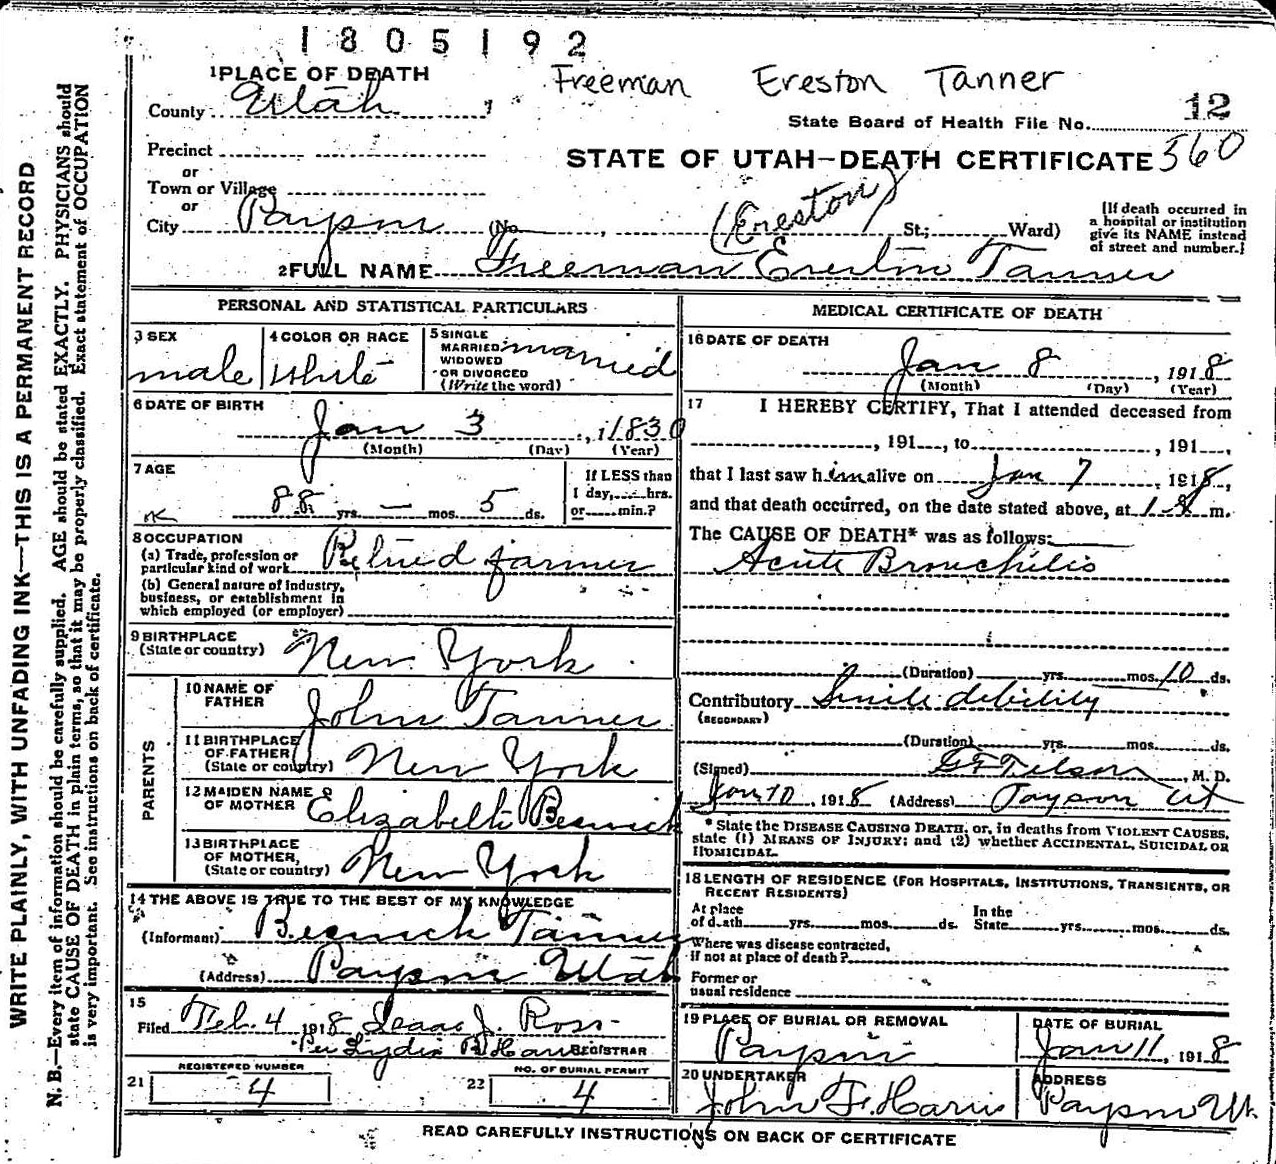 1805192
1 PLACE OF DEATH
Freeman Ereston Tanner
County Utah
State Board of Health File No. 12
Precinct
or
STATE OF UTAH—DEATH CERTIFICATE 560
Town or Village
or
(Ereston)
City Payson (No. , St.; Ward)
[If death occurred in
a hospital or institution
give its NAME instead
of street and number.]
2 FULL NAME Freeman Erestin Tanner
PERSONAL AND STATISTICAL PARTICULARS
3 SEX
male
4 COLOR OR RACE
White
5 SINGLE
MARRIED
WIDOWED
OR DIVORCED
(Write the word)
married
6 DATE OF BIRTH
Jan 3 , 1830
(Month) (Day) (Year)
7 AGE
88 yrs. — mos. 5 ds.
If LESS than
1 day, hrs.
or min.?
8 OCCUPATION
(a) Trade, profession or
particular kind of work Retired farmer
(b) General nature of industry,
business, or establishment in
which employed (or employer)
9 BIRTHPLACE
(State or country) New York
PARENTS
10 NAME OF
FATHER John Tanner
11 BIRTHPLACE
OF FATHER
(State or country) New York
12 MAIDEN NAME
OF MOTHER Elizabeth Beswick
13 BIRTHPLACE
OF MOTHER,
(State or country) New York
14 THE ABOVE IS TRUE TO THE BEST OF MY KNOWLEDGE
(Informant) Beswick Tanner
(Address) Payson Utah
15
Filed Feb. 4 1918 Isaac J. Ross
Per Lydia B REGISTRAR
REGISTERED NUMBER
21 4
NO. OF BURIAL PERMIT
22 4
MEDICAL CERTIFICATE OF DEATH
16 DATE OF DEATH
Jan 8 , 1918
(Month) (Day) (Year)
17 I HEREBY CERTIFY, That I attended deceased from
, 191 , to , 191 ,
that I last saw him alive on Jan 7 , 1918,
and that death occurred, on the date stated above, at m.
The CAUSE OF DEATH* was as follows:
Acute Bronchitis
(Duration) yrs. mos. 10 ds.
Contributory Senile debility
(SECONDARY)
(Duration) yrs. mos. ds.
(Signed) , M. D.
Jan 10 , 1918 (Address) Payson Ut
* State the DISEASE CAUSING DEATH, or, in deaths from VIOLENT CAUSES,
state (1) MEANS OF INJURY; and (2) whether ACCIDENTAL, SUICIDAL OR
HOMICIDAL.
18 LENGTH OF RESIDENCE (FOR HOSPITALS, INSTITUTIONS, TRANSIENTS, OR
RECENT RESIDENTS)
At place
of death yrs. mos. ds.
In the
State yrs. mos. ds.
Where was disease contracted,
if not at place of death?
Former or
usual residence
19 PLACE OF BURIAL OR REMOVAL
Payson
DATE OF BURIAL
Jan 11, 1918
20 UNDERTAKER
John F. Harris
ADDRESS
Payson Ut.
READ CAREFULLY INSTRUCTIONS ON BACK OF CERTIFICATE
WRITE PLAINLY, WITH UNFADING INK—THIS IS A PERMANENT RECORD
N. B.—Every item of information should be carefully supplied. AGE should be stated EXACTLY. PHYSICIANS should
state CAUSE OF DEATH in plain terms, so that it may be properly classified. Exact statement of OCCUPATION
is very important. See instructions on back of certificate.